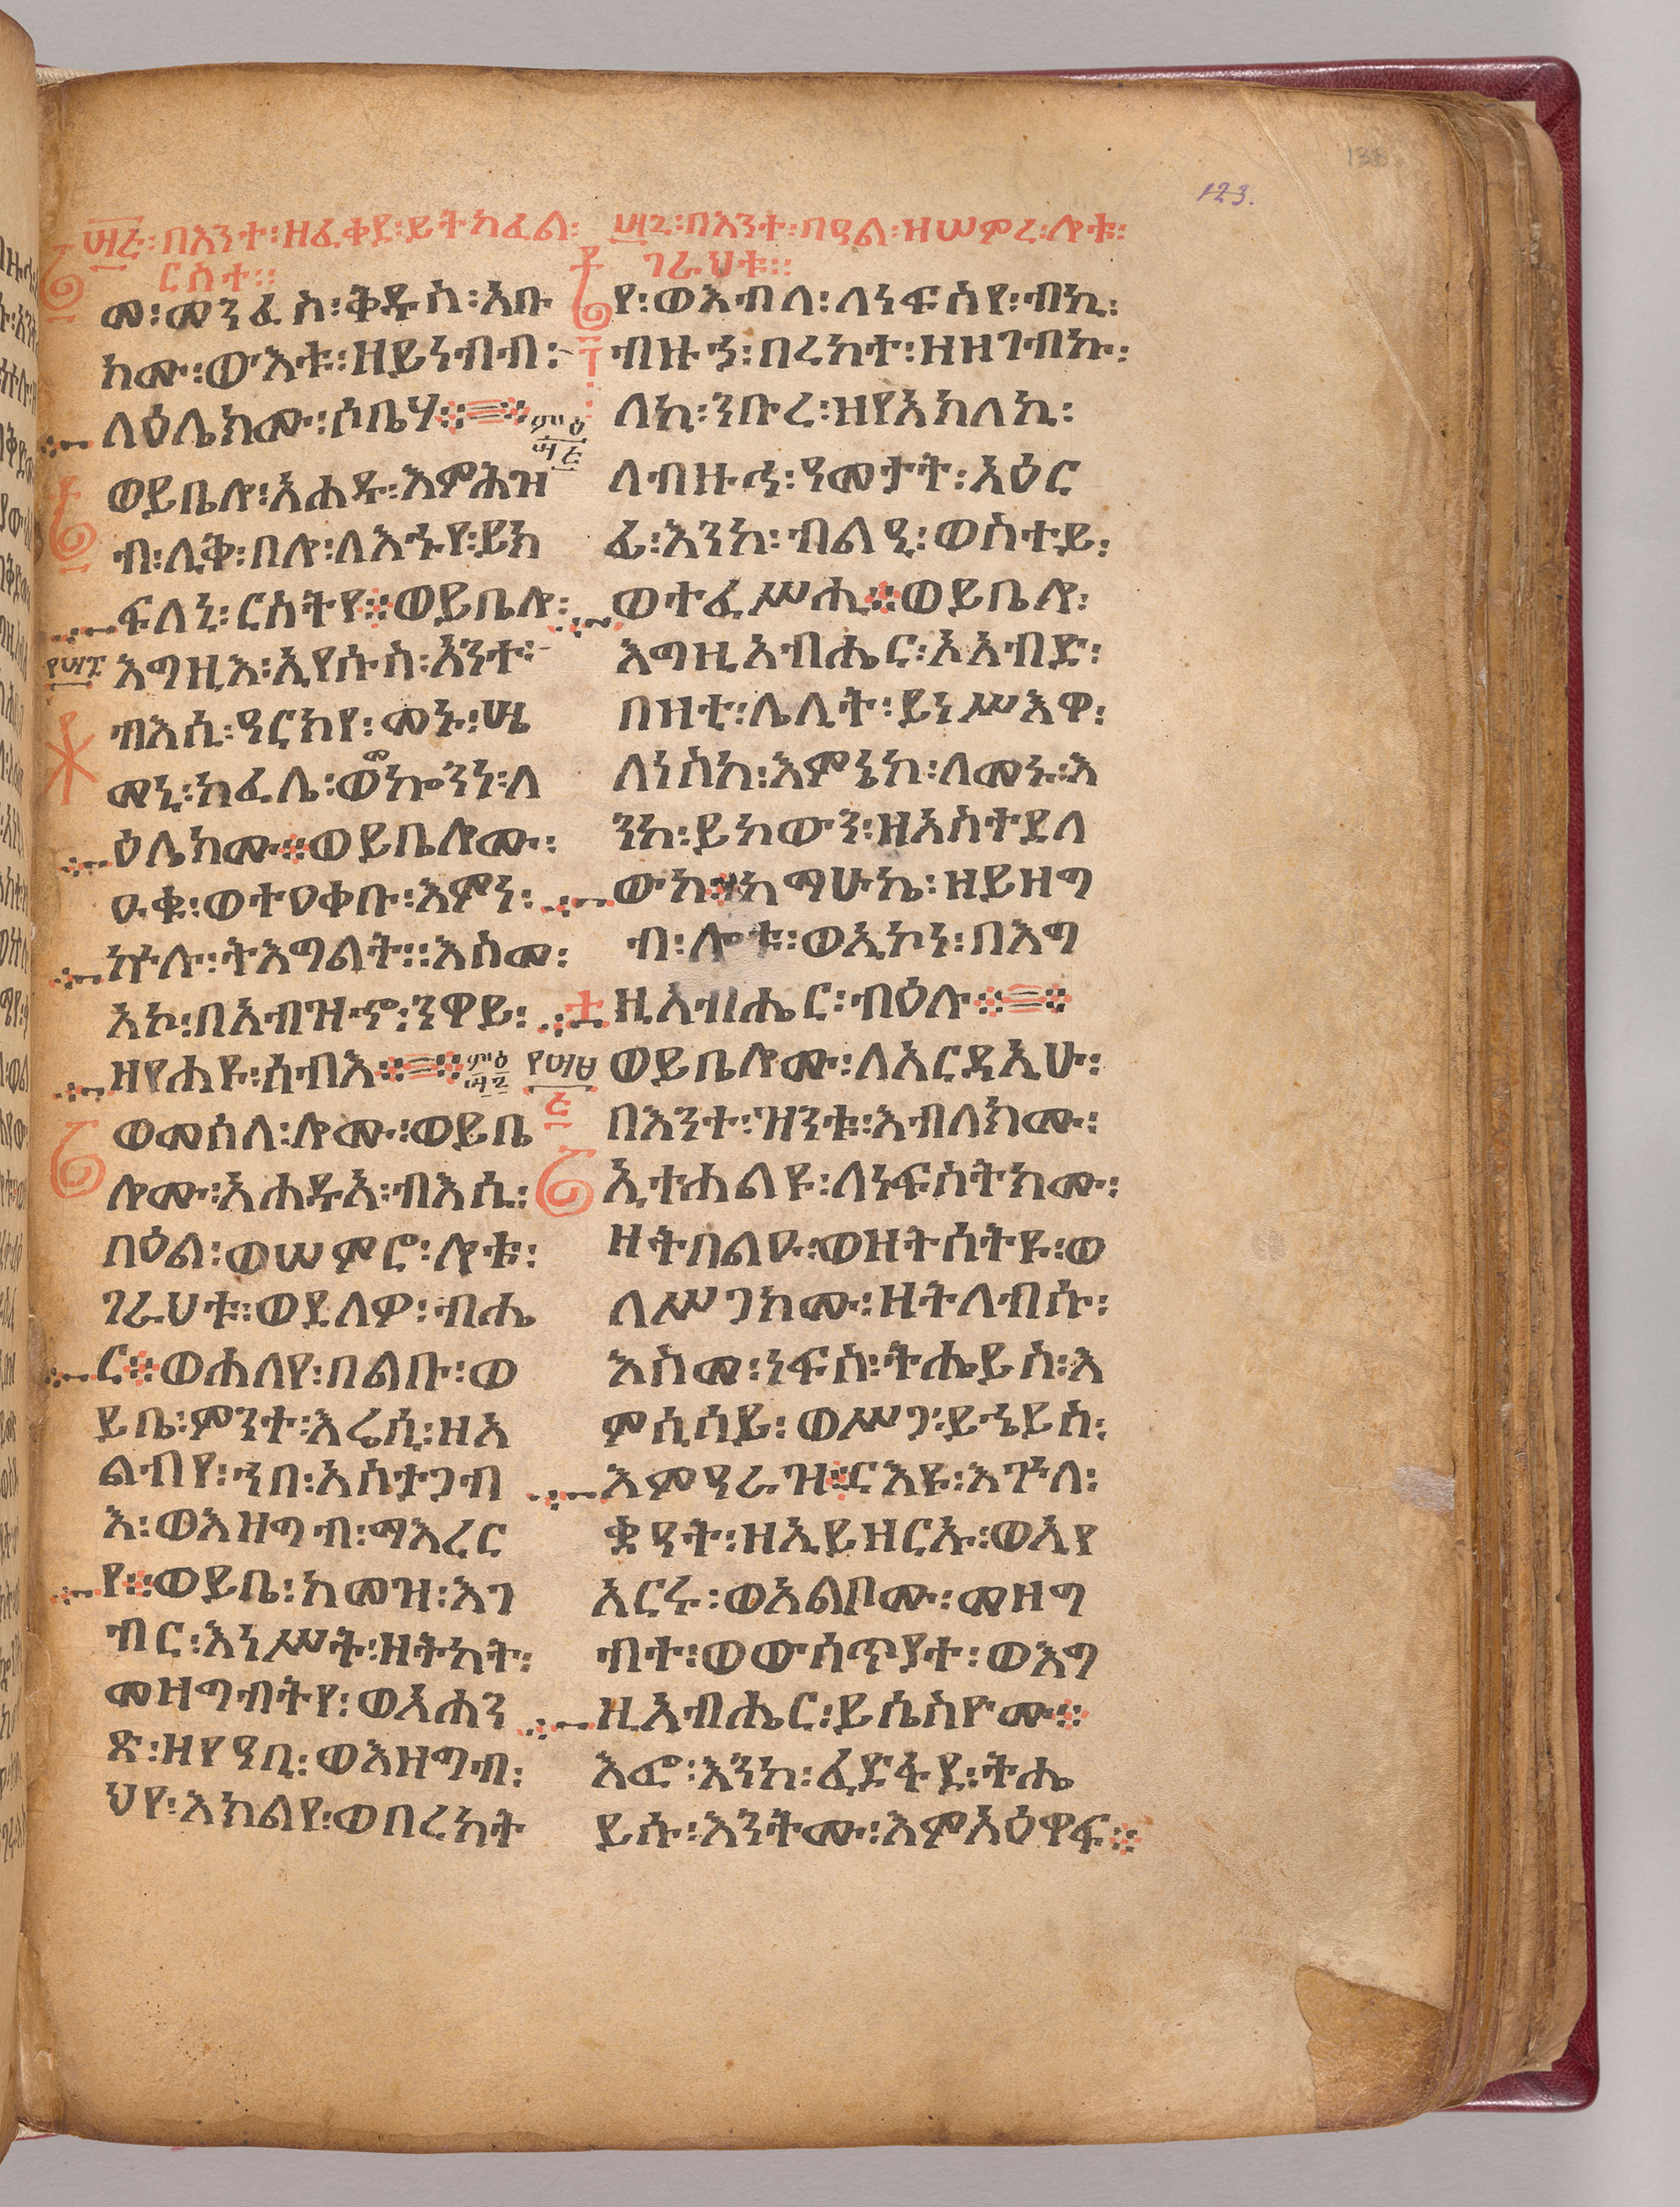 138
123.
፵፩፡በእንተ፡ዘፈቀደ፡ይትካፈል፡
ርስተ።
መ፡መንፈስ፡ቅዱስ፡እቡ
ከሙ፡ውእቱ፡ዘይነብብ፡
ለዕሌክሙ፡ሶቤሃ፨
ወይቤሎ፡አሐዱ፡እምሕዝ
ብ፡ሊቅ፡በሎ፡ለእኁየ፡ይክ
ፍለኒ፡ርስትየ፨ወይቤሎ፡
እግዚእ፡ኢየሱስ፡አንተ፡
ብእሲ፡ዓርክየ፡መኑ፡ሤ
መኒ፡ከፈሌ፡ወመኰንነ፡ለ
ዕሌክሙ፨ወይቤሎሙ፡
ዑቁ፡ወተዐቀቡ፡እምነ፡
ኵሉ፡ትእግልት።እስመ፡
አኮ፡በአብዝኆ፡ንዋይ፡
ዘየሐዩ፡ሰብእ፨
ወመሰለ፡ሎሙ፡ወይቤ
ሎሙ፡አሐዱአ፡ብእሲ፡
በዕል፡ወሠምሮ፡ሎቱ፡
ገራህቱ፡ወደለዎ፡ብሔ
ር፨ወሐለየ፡በልቡ፡ወ
ይቤ፡ምንተ፡እሬሲ፡ዘአ
ልብየ፡ኀበ፡አስተጋብ
እ፡ወእዘግብ፡ማእረር
የ፨ወይቤ፡ከመዝ፡እገ
ብር፡እነሥት፡ዘትካት፡
መዝግብትየ፡ወአሐን
ጽ፡ዘየዓቢ፡ወእዘግብ፡
ህየ፡እክልየ፡ወበረከት
፵፪፡በእንተ፡በዓል፡ዘሠምረ፡ሎቱ፡
ገራህቱ።
የ፡ወእብላ፡ለነፍስየ፡ብኪ፡
ብዙኅ፡በረከተ፡ዘዘገብኩ፡
ለኪ፡ንቡረ፡ዘየአክለኪ፡
ለብዙኅ፡ዓመታት፡አዕር
ፊ፡እንከ፡ብልዒ፡ወስተይ፡
ወተፈሥሒ፨ወይቤሎ፡
እግዚአብሔር፡ኦአብድ፡
በዛቲ፡ሌሊት፡ይነሥእዋ፡
ለነስከ፡እምኔከ፡ለመኑ፡እ
ንከ፡ይከውን፡ዘአስተደለ
ውከ፨ከማሁኬ፡ዘይዘግ
ብ፡ሎቱ፡ወኢኮነ፡በእግ
ዚአብሔር፡ብዕሉ፨
ወይቤሎሙ፡ለአርዳኢሁ፡
በእንተ፡ዝንቱ፡እብለክሙ፡
ኢተሐልዩ፡ለነፍስትክሙ፡
ዘትበልዑ፡ወዘትሰትዩ፡ወ
ለሥጋክሙ፡ዘትለብሱ፡
እስመ፡ነፍስ፡ትሔይስ፡እ
ምሲሳይ፡ወሥጋ፡ይኄይስ፡
እምዓራዝ፨ርእዩ፡እጕለ፡
ቋዓት፡ዘኢይዘርኡ፡ወኢየ
አርሩ፡ወአልቦሙ፡መዘግ
ብተ፡ወውሳጥያተ፡ወእግ
ዚአብሔር፡ይሴስዮሙ፨
እፎ፡እንከ፡ፈድፋደ፡ትሔ
ይሱ፡አንትሙ፡እምአዕዋፍ፨